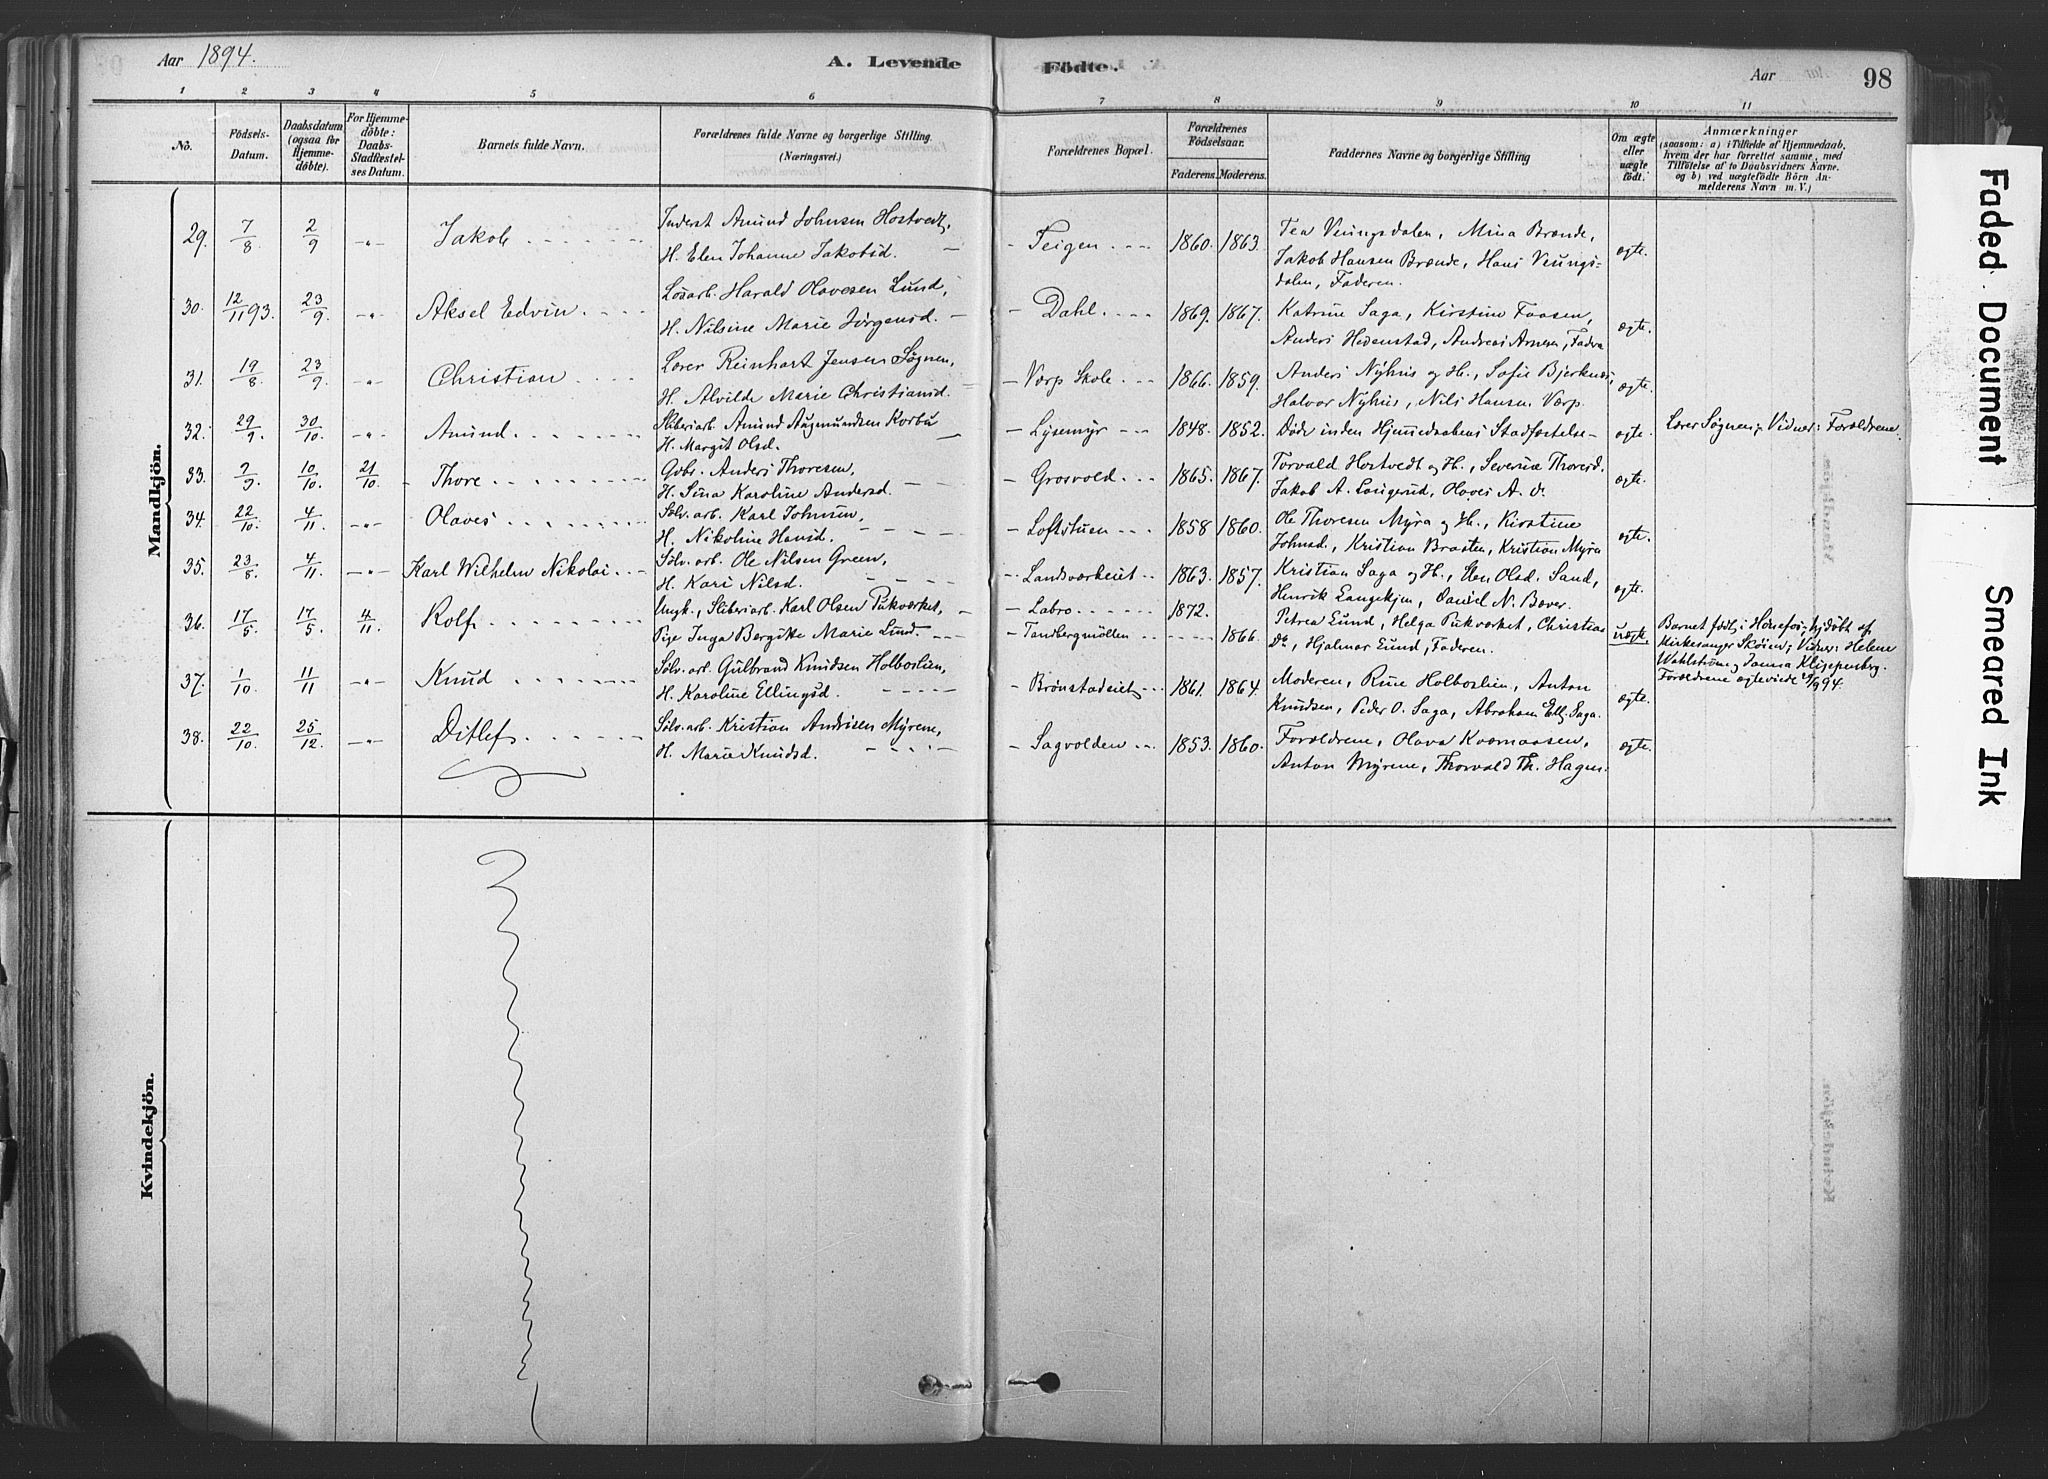 Aar 1894. A. Levende Födte. Aar 98
1 2 3 4 5 6 7 8 9 10 11
No. Födsels-Datum. Daabsdatum (ogsaa for Hjemmedöbte). For Hjemmedöbte: Daabs-Stadfæstelses Datum. Barnets fulde Navn. Forældrenes fulde Navne og borgerlige Stilling. (Næringsvei.) Forældrenes Bopæl. Forældrenes Födselsaar. Faderens. Moderens. Faddernes Navne og borgerlige Stilling Om ægte eller uægte födt. Anmærkninger (saasom: a) i Tilfælde af Hjemmedaab, hvem der har forrettet samme, med Tilföielse af to Daabsvidners Navne. og b) ved uægtefödte Börn Anmelderens Navn m. V.)
Mandkjön.
29. 7/8 2/9 -"- Jakob Inderst Amund Johnsen Hostvedt, Teigen 1860. 1863. Tea Veungsdalen, Mina Brænde, ægte.
H. Elen Johanne Jakobsd. Jakob Hansen Brænde, Hans Veungs=
dalen, Faderen.
30. 12/11 93. 23/9 -"- Aksel Edvin Løsarb. Harald Olavesen Lund, Dahl 1869. 1867. Katrine Saga, Kirstine Faasen, ægte.
H. Nilsine Marie Jørgensd. Anders Hedenstad, Andreas Arnesen, Faderen
31. 19/8 23/9 -"- Christian Lærer Reinhart Jensen Søgnen, Værp Skole 1866. 1859. Anders Nyhus og H., Sofie Bjerknes, ægte.
H. Alvilde Marie Christiansd. Halvor Nyhus, Nils Hansen Værp.
32. 29/9. 30/10. -"- Amund Sliberiarb. Amund Augmundsen Korbu Lysemyr 1848. 1852. Døde inden Hjemmedaabens Stadfæstelse ægte. Lærer Søgnen; Vidner: Forældrene.
H. Margit Olsd.
33. 7/9. 10/10. 21/10 Thore Gbr. Anders Thoresen, Grosvold 1865. 1867. Torvald Hostvedt og H., Severine Thoresd. ægte.
H. Sina Karoline Andersd. Jakob A. Langerud, Olaves A. do.
34. 22/10. 4/11. -"- Olaves Sølv. arb. Karl Johnsen, Loftstuen 1858 1860. Ole Thoresen Myra og H., Kirstine ægte.
H. Nikoline Hansd. Johnsd., Kristian Braaten, Kristian Myra
35. 23/8. 4/11. -"- Karl Wilhelm Nikolai Sølv. arb. Ole Nilsen Green, Landsværkeiet 1863. 1857. Kristian Saga og H., Elen Olsd. Sand, ægte.
H. Kari Nilsd. Henrik Langekjen, Daniel N. Bæver.
36. 17/5. 17/5. 4/11. Rolf Ungk., Sliberiarb. Karl Olsen Pukværket, Labro 1872. Petrea Lund, Helga Pukværket, Christian uægte Barnet født i Hønefos; hjdøbt af
Pige Inga Bergitte Marie Lund. Tandbergmöllen 1866. Do, Hjalmar Lund, Faderen. Kirkesanger Skøien; Vidner: Helene
Wahlstrøm og Janna Klippenberg.
Forældrene ægteviede /9 94.
37. 1/10. 11/11 -"- Knud Sølv. arb. Gulbrand Knudsen Holboslien, Brønstadeiet 1861. 1864. Moderen, Rine Holboslien, Anton ægte.
H. Karoline Ellingsd. Knudsen, Peder O. Saga, Abraham Ell. Saga.
38. 22/10. 25/12. -"- Ditlef Sølv. arb. Kristian Andersen Myrene, Sagvolden 1853. 1860. Forældrene, Olava Kværnaasen, ægte.
H. Marie Knudsd. Anton Myrene, Thorvald Th. Hagen.
Kvindekjön.
Faded Document
Smeared Ink